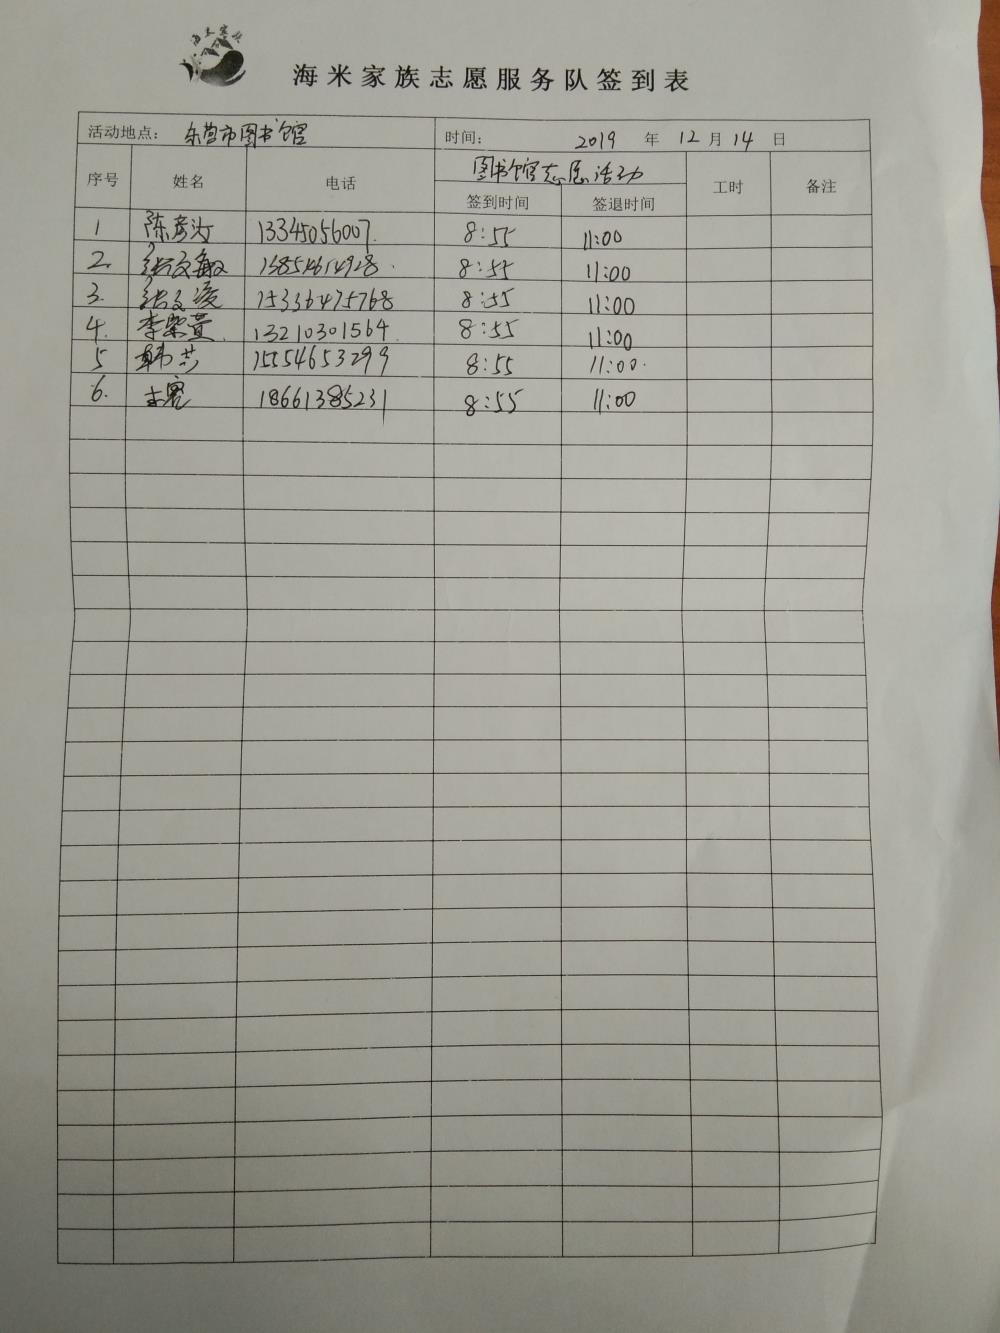 海米家族
海米家族志愿服务队签到表
活动地点: 东营市图书馆 时间: 2019 年 12 月 14 日
序号 姓名 电话 图书馆志愿活动 工时 备注
签到时间 签退时间
1 陈彦汝 13345056007 8:55 11:00
2. 张文敏 8:55 11:00
3. 张文凌 15336475768 8:55 11:00
4. 李荣萱 13210301564 8:55 11:00
5 韩芸 15554653299 8:55 11:00
6. 18661385231 8:55 11:00